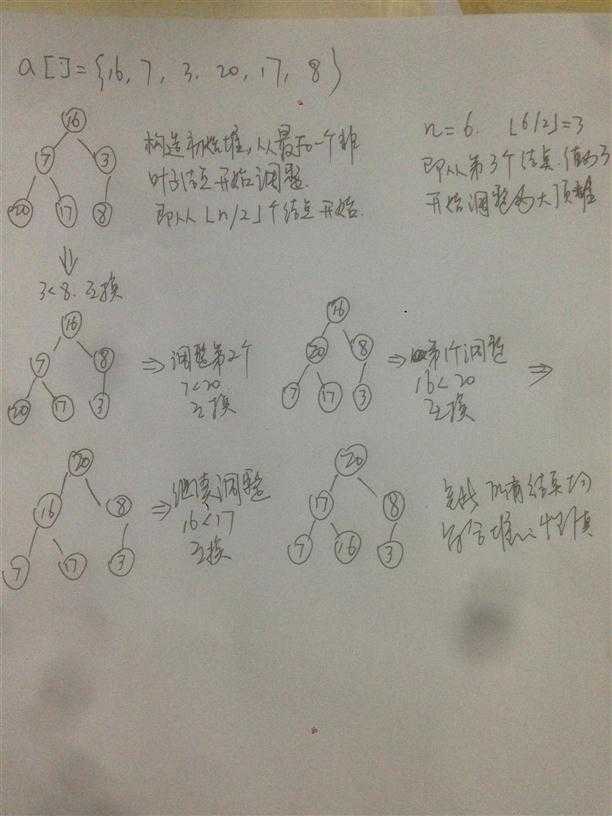 a[]={16, 7, 3, 20, 17, 8}
16
7 3
20 17 8
构造初始堆,从最后一个非
叶子结点开始调整.
即从⌊n/2⌋个结点开始.
n=6. ⌊6/2⌋=3
即从第3个结点 值为3
开始调整为大顶堆
⇓
3<8. 互换
16
7 8
20 17 3
⇒ 调整第2个
7<20
互换
16
20 8
7 17 3
⇒ 第1个调整
16<20
互换
⇒
20
16 8
7 17 3
⇒ 继续调整
16<17
互换
20
17 8
7 16 3
至此 所有结点均
符合堆的性质